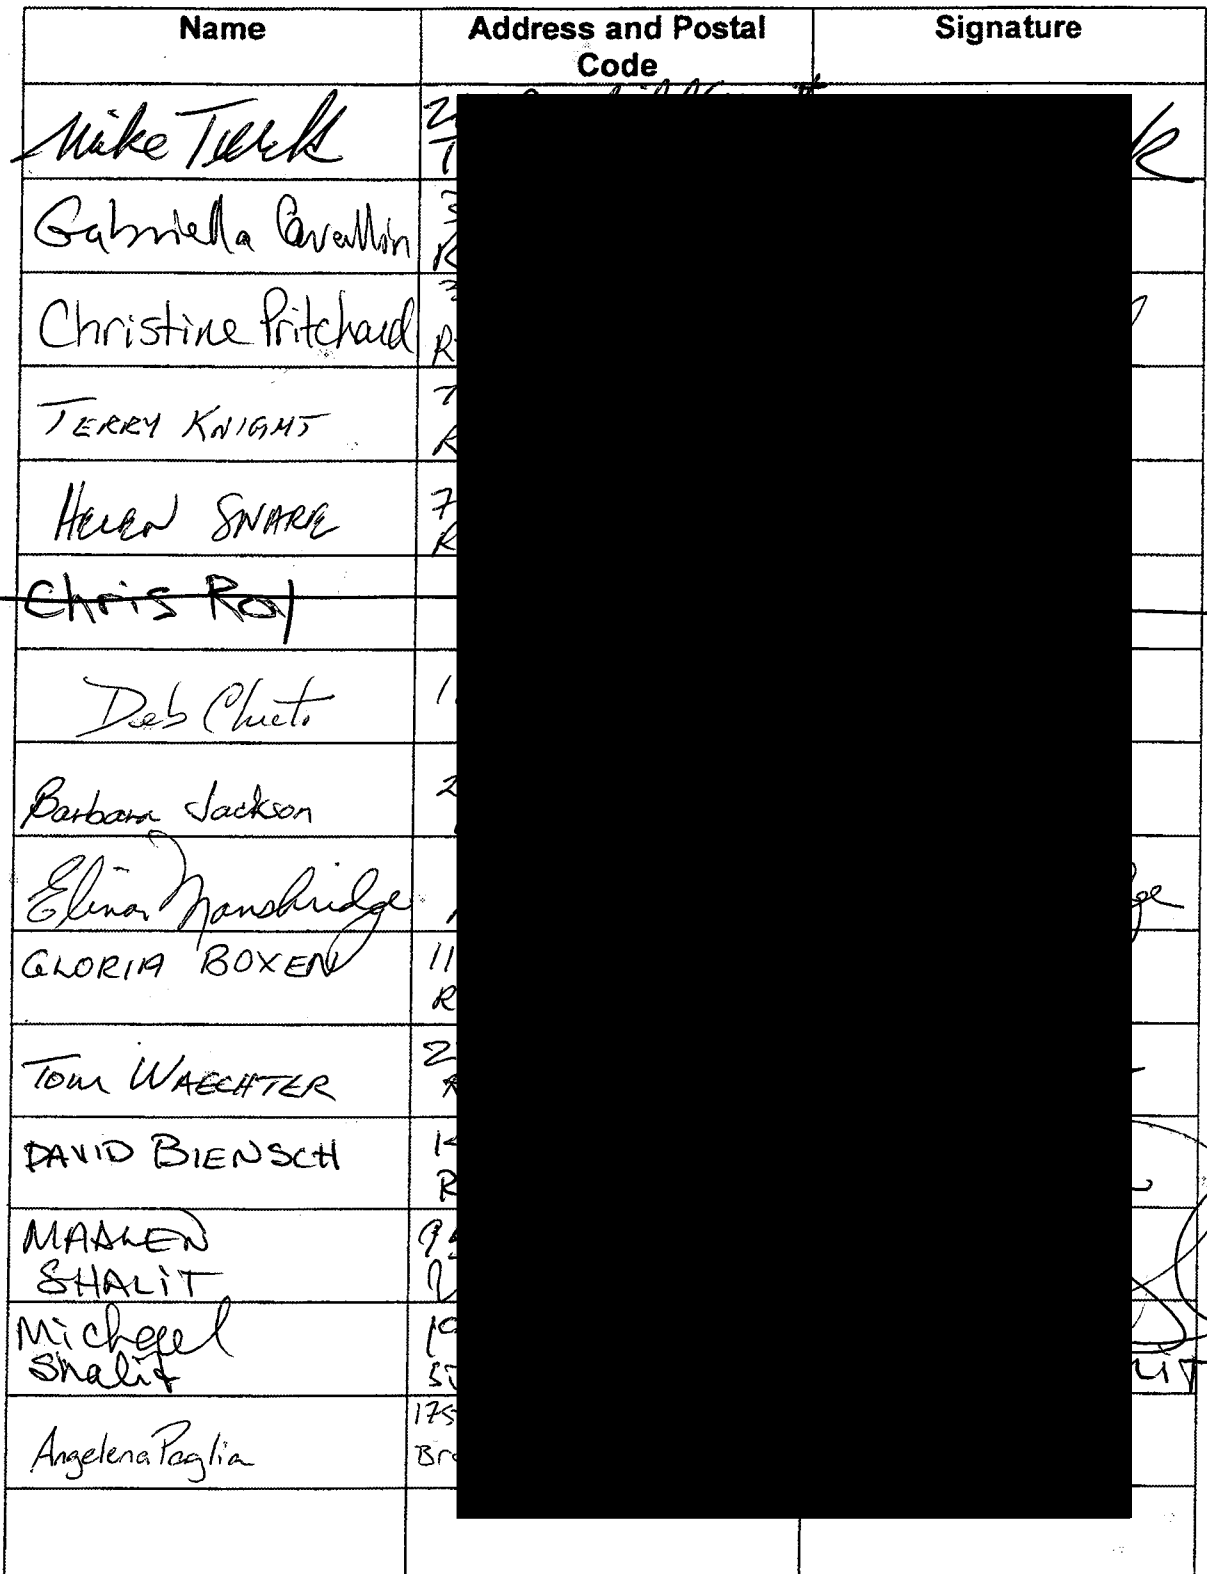 Name Address and Postal Signature
Code
Mike Turk
Gabriella Cavallin
Christine Pritchard
R
TERRY KNIGHT
7
R
HELEN SNARE
7
R
Chris Roy
Deb
1
Barbara Jackson
2
Elinor Mansbridge
ge
GLORIA BOXEN
11
R
TOM WAECHTER
2
DAVID BIENSCH
R
MAALEN
SHALIT
Michael
Shalit
LIT
Angelena Paglia
175
Bro